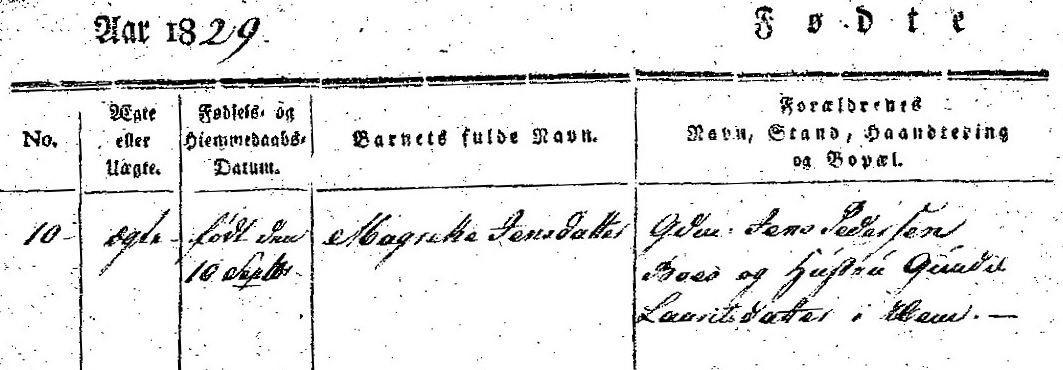 Aar 1829. Fødte
No.
Ægte
eller
Uægte.
Fødsels- og
Hiemmedaabs-
Datum.
Barnets fulde Navn.
Forældrenes
Navn, Stand, Haandtering
og Bopæl.
10
ægte
født den
10 Septbr
Magreke Jensdatter
Gdm. Jens Pedersen
og Hustru
Lauritsdatter i